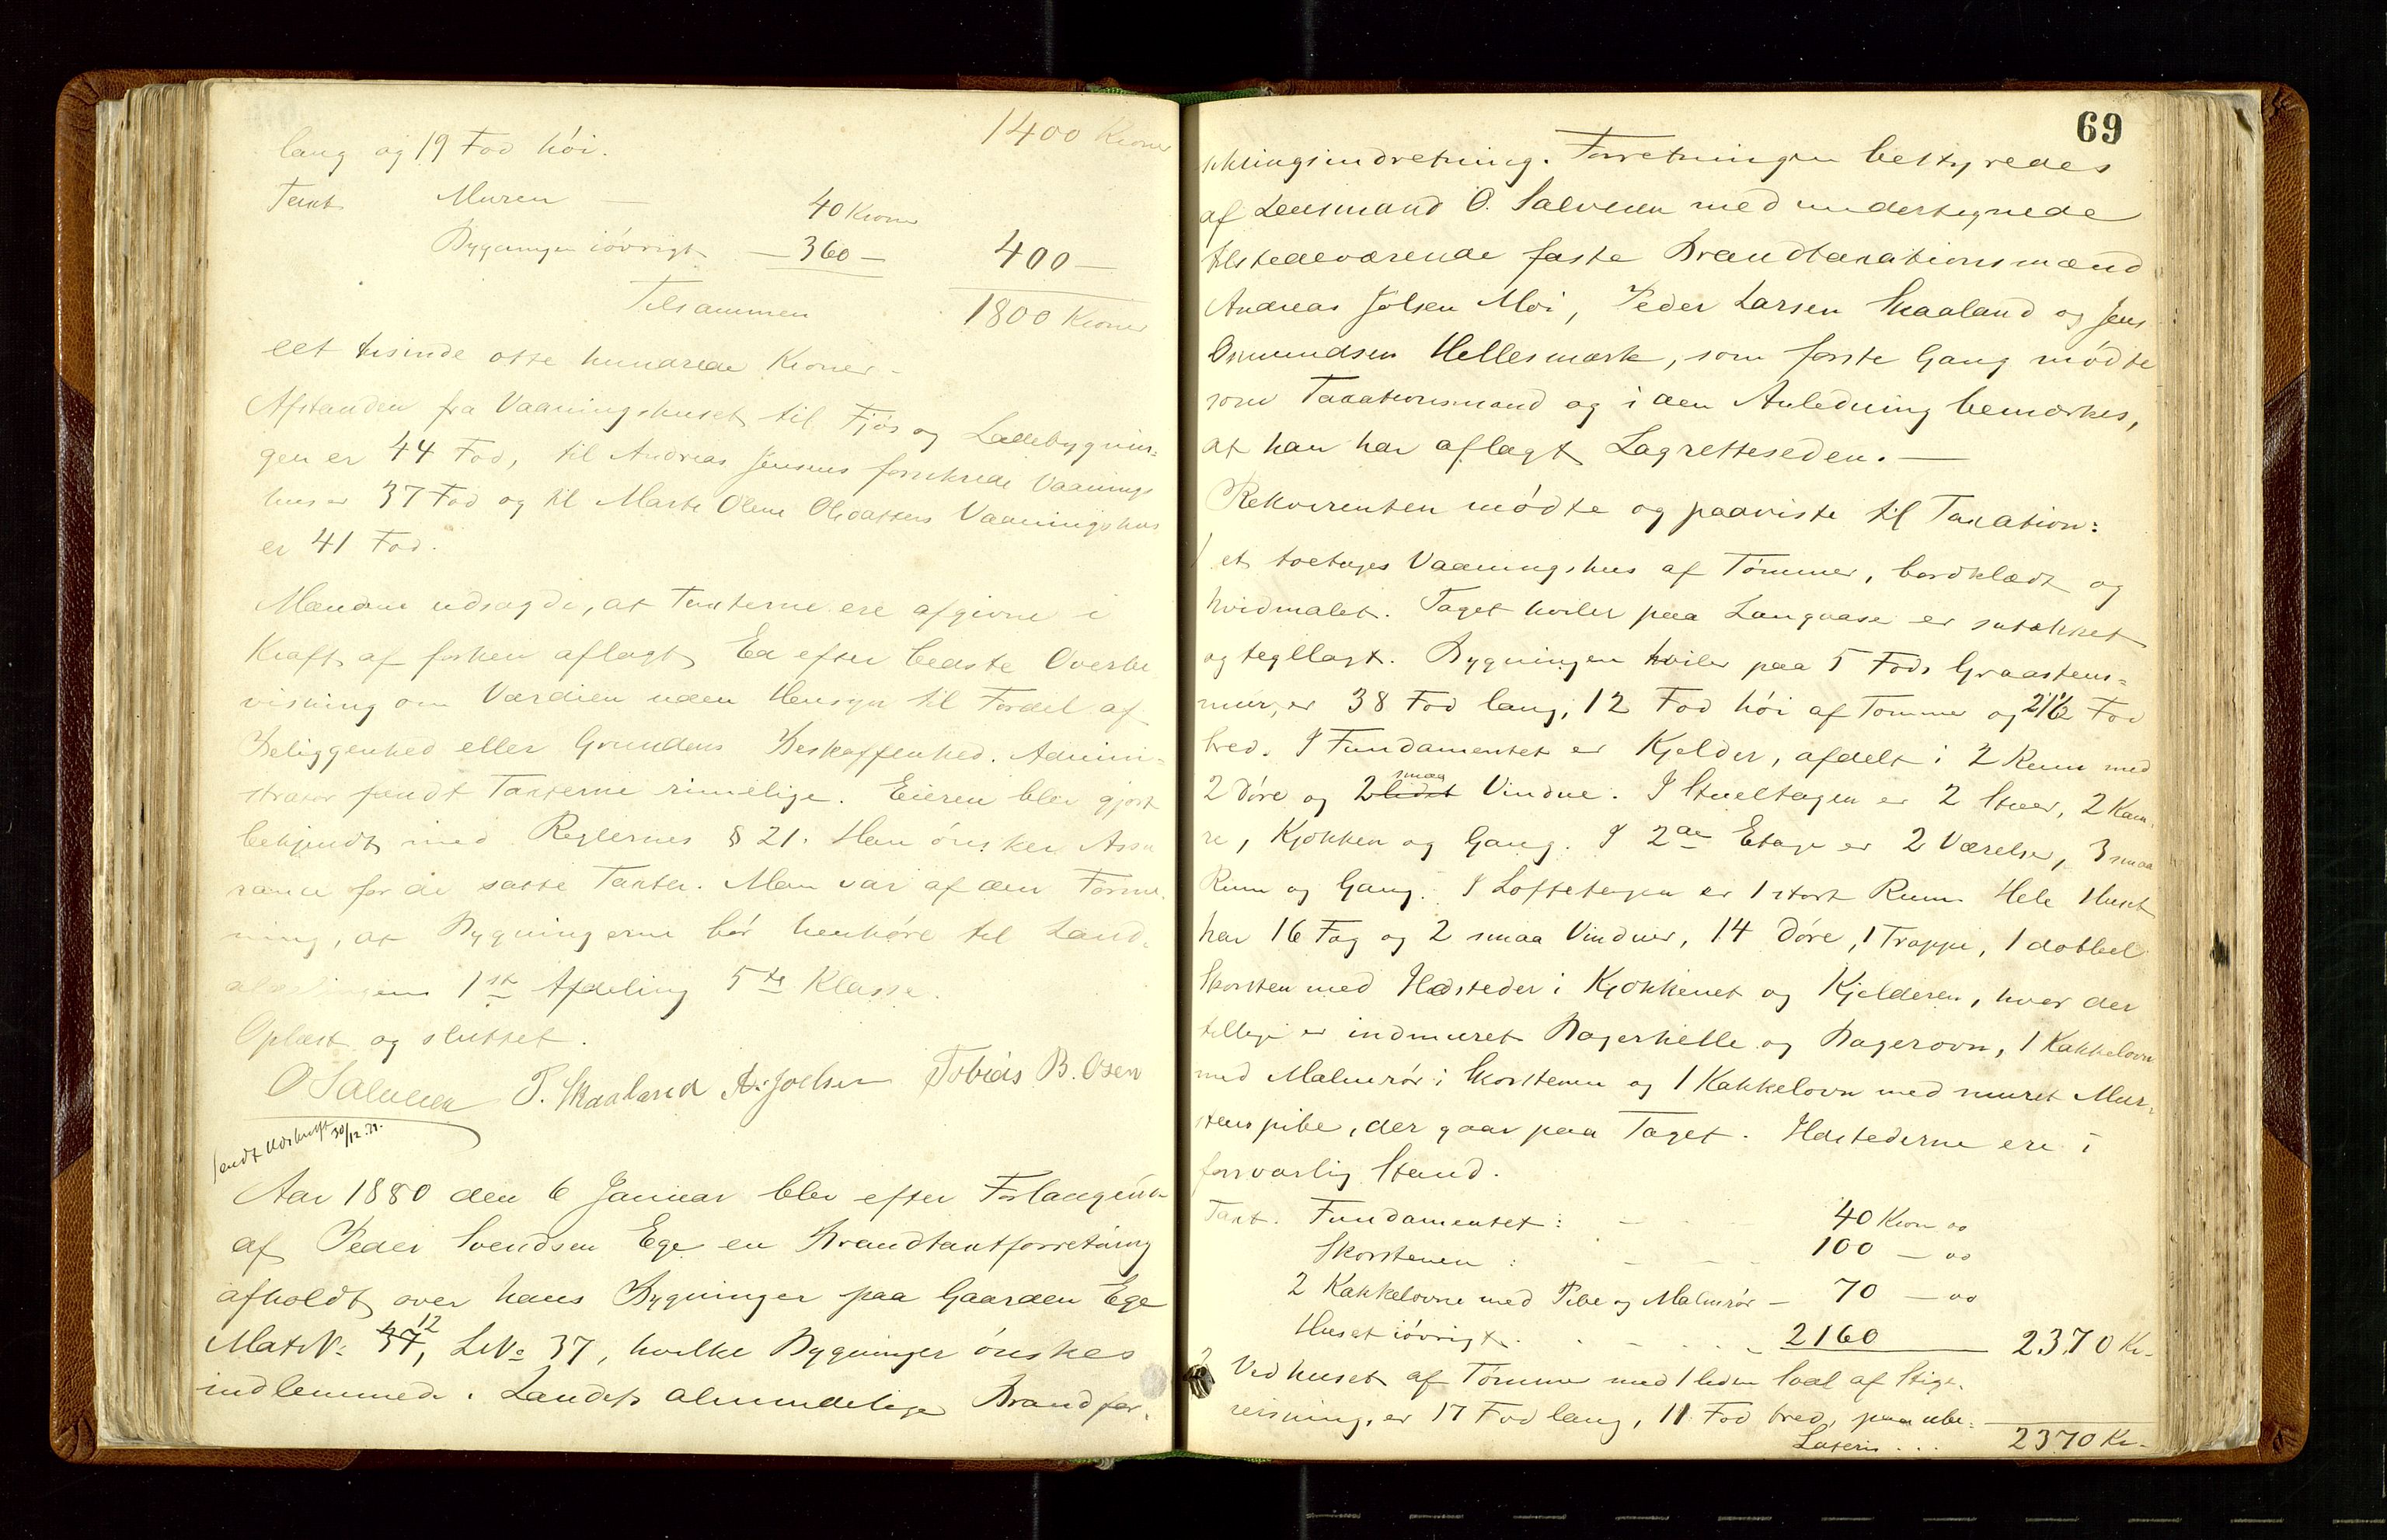 1400 Kroner
lang og 19 Fod höi.
Taxt Muren — 40 Kroner
Bygningen iövrigt — 360 — 400 —
Tilsammen 1800 Kroner
eet tusinde otte hundrede Kroner -
Afstanden fra Vaaningshuset til Fjös og Ladebygnin-
gen er 44 Fod, til Andreas Jensens forsikrede Vaanings
hus er 37 Fod og til Marte Olene Olsdatters Vaaningshus
er 41 Fod.
Mændene udsagde, at Taxterne ere afgivne i
Kraft af forhen aflagt Ed efter bedste Overbe
visning om Værdien uden Hensyn til Fordel af
Beliggenhed eller Grundens Beskaffenhed. Admini-
strator fandt Taxterne rimelige. Eieren blev gjort
bekjendt med Reglernes § 21. Han önsker Assu
rance for de satte Taxter. Man var af den Forme
ning, at Bygningerne bör henhöre til Land-
afdelingens 1ste Afdeling 5te Klasse.
Oplæst og sluttet.
O Salvesen P. Skaaland A. Joelsen Tobias B. Osen
sendt Udskrift 30/12.79.
Aar 1880 den 6 Januar blev efter Forlangende
af Peder Svendsen Ege en Brandtaxtforretning
afholdt over hans Bygninger paa Gaarden Ege
Mat№: 37, 12 L№ 37, hvilke Bygninger önskes
indlemmede i Landets almindelige Brandfor-
69
sikringsindretning. Forretningen bestyredes
af Lensmand O. Salvesen med undertegnede
tilstedeværende faste Brandtaxationsmænd
Andreas Jolsen Moi, Peder Larsen Skaaland og Jens
Osmundsen Hellesmark, som förste Gang mödte
som Taxationsmand og i den Anledning bemærkes,
at han har aflagt Lagretteseden. —
Rekvirenten mödte og paaviste til Taxation:
1 et toetages Vaaningshus af Tömmer, bordklædt og
hvidmalet. Taget hviler paa Langaase er sutækket
og tegllagt. Bygningen hviler paa 5 Fods Graastens-
mur, er 38 Fod lang, 12 Fod höi af Tömmer og 21½ Fod
bred. I Fundamentet er Kjelder, afdelt i 2 Rum med
2 Döre og 2 lidet smaa Vindue. I Stueetagen er 2 Stuer, 2 Kam-
re, Kjökken og Gang. I 2den Etage er 2 Værelser, 3 smaa
Rum og Gang. I Loftetagen er 1 stort Rum. Hele Huset
har 16 Fag og 2 smaa Vinduer, 14 Döre, 1 Trappe, 1 dobbel
Skorsten med Ildsteder i Kjökkenet og Kjelderen, hvor der
tillige er indmuret Bagerhelle og Bagerovn, 1 Kakkelovn
med Malmrör i Skorstenen og 1 Kakkelovn med muret Mur-
stenspibe, der gaar paa Taget. Ildstederne ere i
forsvarlig Stand.
Taxt. Fundamentet: 40 Kron oo
Skorstenen: 100 — oo
2 Kakkelovne med Pibe og Malmrör — 70 — oo
Huset iövrigt. 2160 2370 Kr.
2 Vedhuset af Tömmer med 1 liden Sval af Stige-
reisning, er 17 Fod lang, 11 Fod bred, paa ube-
Lateris ... 2370 Kr.